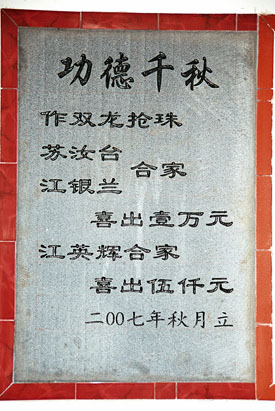 功德千秋
作双龙抢珠
苏汝台
合家
江银兰
喜出壹万元
江英辉合家
喜出伍仟元
二00七年秋月立